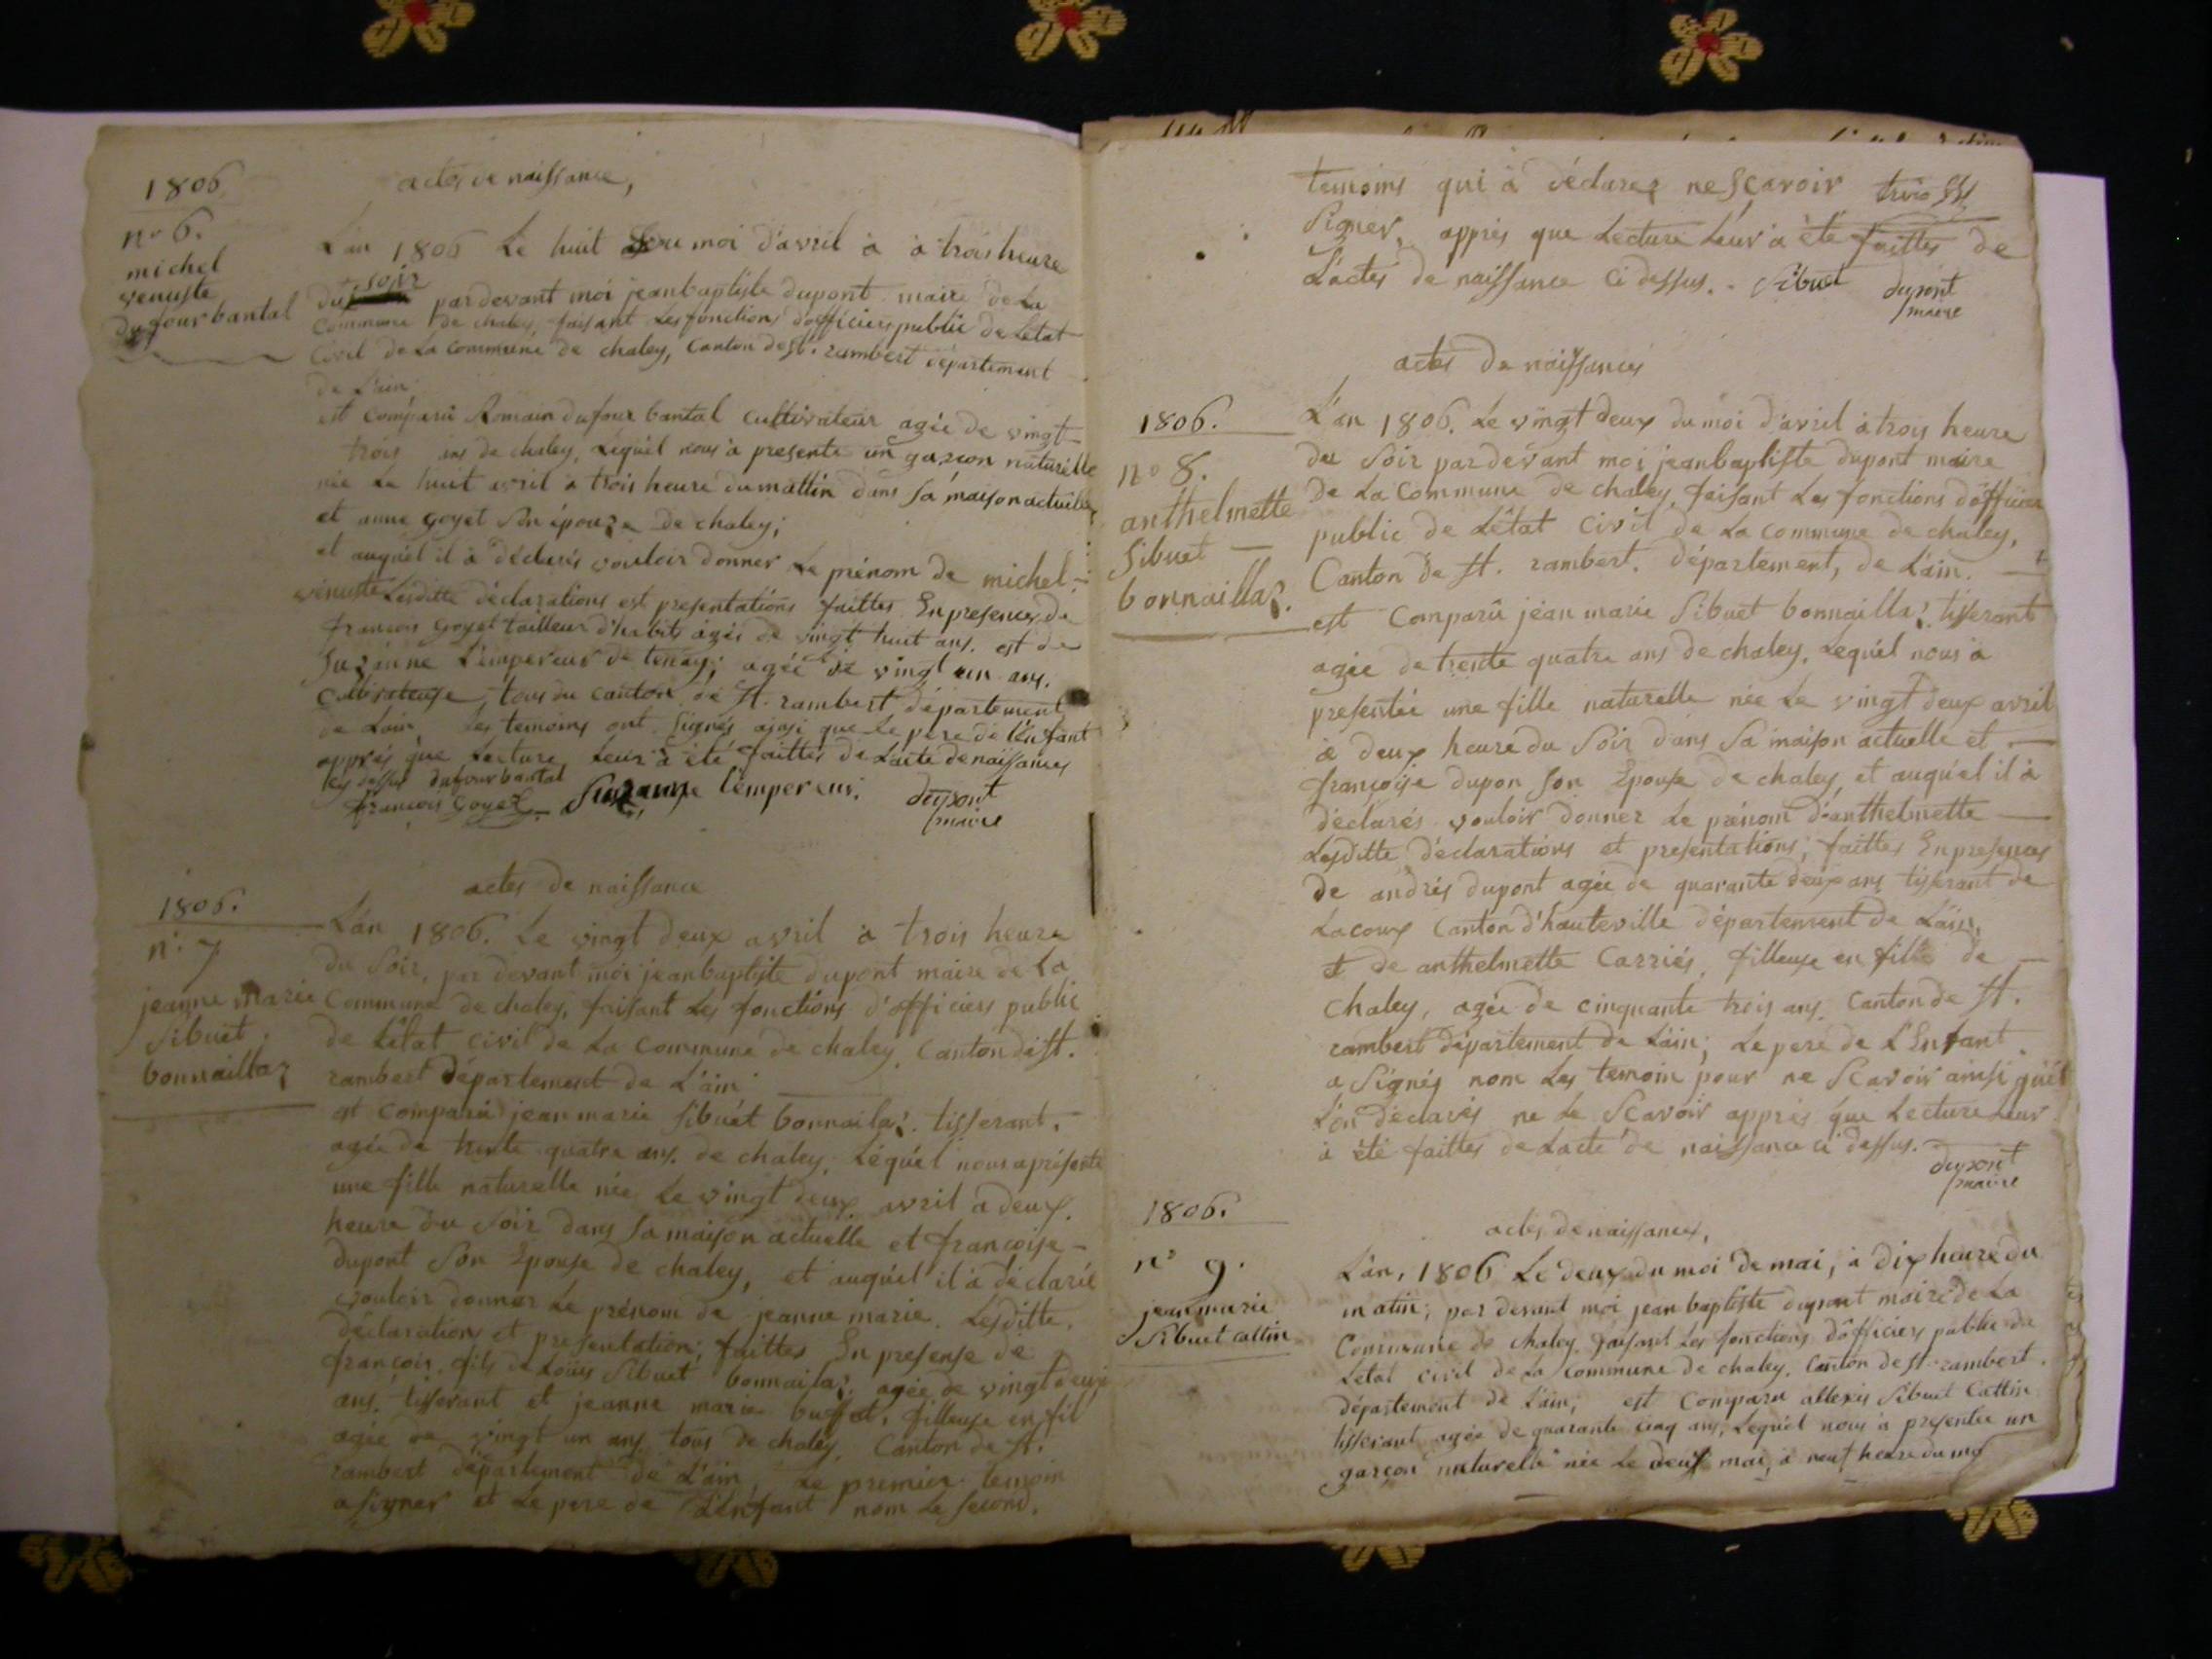 1806
actes de naissance,
n° 6.
michel
venuste
dufour bantal
L'an 1806 Le huit du moi d'avril à à trois heure
du soir pardevant moi jeanbaptiste dupont maire de La
Commune de chaley, faisant Les fonctions d'officiers public de L'état
Civil de La commune de chaley, Canton de st. rambert département
de L'ain
est Comparû Romain dufour bantal cultivateur agée de vingt
trois ans de chaley, Lequel nous à presente un garcon naturelle
née Le huit avril à trois heure du mattin dans sa maison actuelle
et anne goyet son épouze de chaley;
et auquel il à déclarés vouloir donner Le prénom de michel
venuste Lesditte déclarations est presentations faittes En presences de
francois goyet tailleur d'habits agés de vingt huit ans. est de
Suzanne L'empereur de tenay; agée de vingt un ans.
Cultivateuse tous du canton de st. rambert département
de Lain, Les temoins ont signés ainsi que Le pere de L'enfant
apprés que Lecture Leur à été faittes de L'acte de naissances
cy dessus dufour bantal
francois Goyet Suzanne L'empereur. dupont
maire
1806.
actes de naissance
n°. 7
jeanne marie
Sibuet
bonnaillaz
L'an 1806. Le vingt deux avril à trois heure
du Soir, par devant moi jeanbaptiste dupont maire de La
Commune de chaley, faisant Les fonctions d'officiers public
de L'état civil de La Commune de chaley, Canton de st.
rambert département de L'ain
est comparû jean marie Sibuét bonnailaz. tisserant,
agée de trente quatre ans. de chaley, Léquél nous a présente
une fille naturelle née Le vingt deux avril a deux.
heure du Soir dans Sa maison actuelle et francoise
dupont Son Epouse de chaley, et auquél il à déclarée
vouloir donner Le prénom de jeanne marie. Lesditte.
déclaration et presentation; faittes En presense de
francois. fils de Loüis Sibuet bonnailaz. agée de vingt deux
ans. tisserant et jeanne marie buffet, filleuse en fil
agée de vingt un ans tous de chaley Canton de st.
rambert département de L'ain, Le premier temoin
a signer et Le pere de L'enfant nom Le second.
temoins qui à déclarez ne Scavoir
Signer, apprés que Lecture Leur à été faittes de
L'actes de naissance Ci dessus. Sibuet dupont
maire
actes de naissances
1806.
n° 8.
anthelmette
Sibuet
bonnaillaz.
L'an 1806. Le vingt deux du moi d'avril à trois heure
du Soir pardevant moi jeanbaptiste dupont maire
de La Commune de chaley, faisant Les fonctions d'officier
public de L'état Civil de La commune de chaley,
Canton de st. rambert. département, de L'ain.
est Comparû jean marie Sibuet bonnaillaz. tisserant
agée de trente quatre ans de chaley. Lequél nous à
presentée une fille naturelle née Le vingt deux avril
à deux heure du Soir dans Sa maison actuelle et
françoise dupon Son Epouse de chaley, et auquél il à
déclarés vouloir donner Le prénom d'anthelmette
Lesditte déclarations et presentations; faittes En presences
de andrés dupont agée de quarante deux ans tisserant de
Lacoux Canton d'hauteville département de L'ain,
et de anthelmette Carriés, filleuse en fille de
Chaley, agée de cinquante trois ans Canton de st.
rambert département de L'ain; Le pere de L'Enfant
a Signés nom Les temoin pour ne Scavoir ainsi qu'el
L'on déclarés ne Le Scavoir apprés que Lecture Leur
à été faittes de L'acte de naissance ci dessus.
dupont
maire
1806.
actes de naissances,
n° 9.
jean marie
Sibuet cattin
L'an, 1806 Le deux du moi de mai, à dix heure du
matin; par devant moi jean baptiste dupont maire de La
Commune de chaley faisant Les fonctions d'officiers public de
L'état civil de La commune de chaley. Canton de st. rambert.
département de L'ain; est Comparu allexis Sibuet Cattin
tisserant agée de quarante cinq ans, Lequél nous à presentée un
garçon naturelle née Le deux mai, à neuf heure du ma